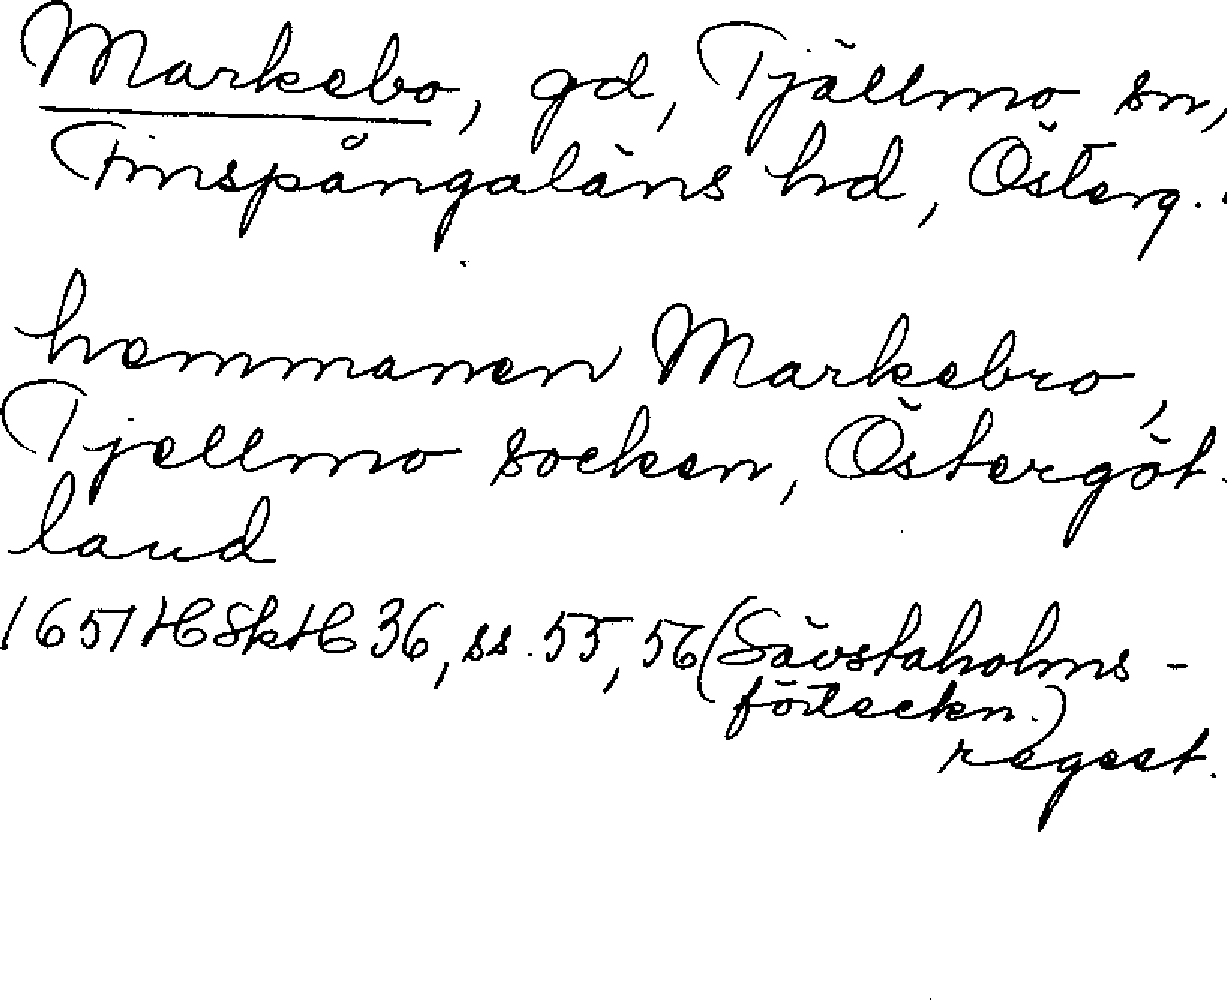 Markebo, gd, Tjällmo sn,
Finspångaläns hd, Österg.
hemmanen Markebro,
Tjellmo socken, Östergöt-
land
1651 HSkH 36, ss. 55, 56 (Sävstaholms-
förteckn.)
regest.